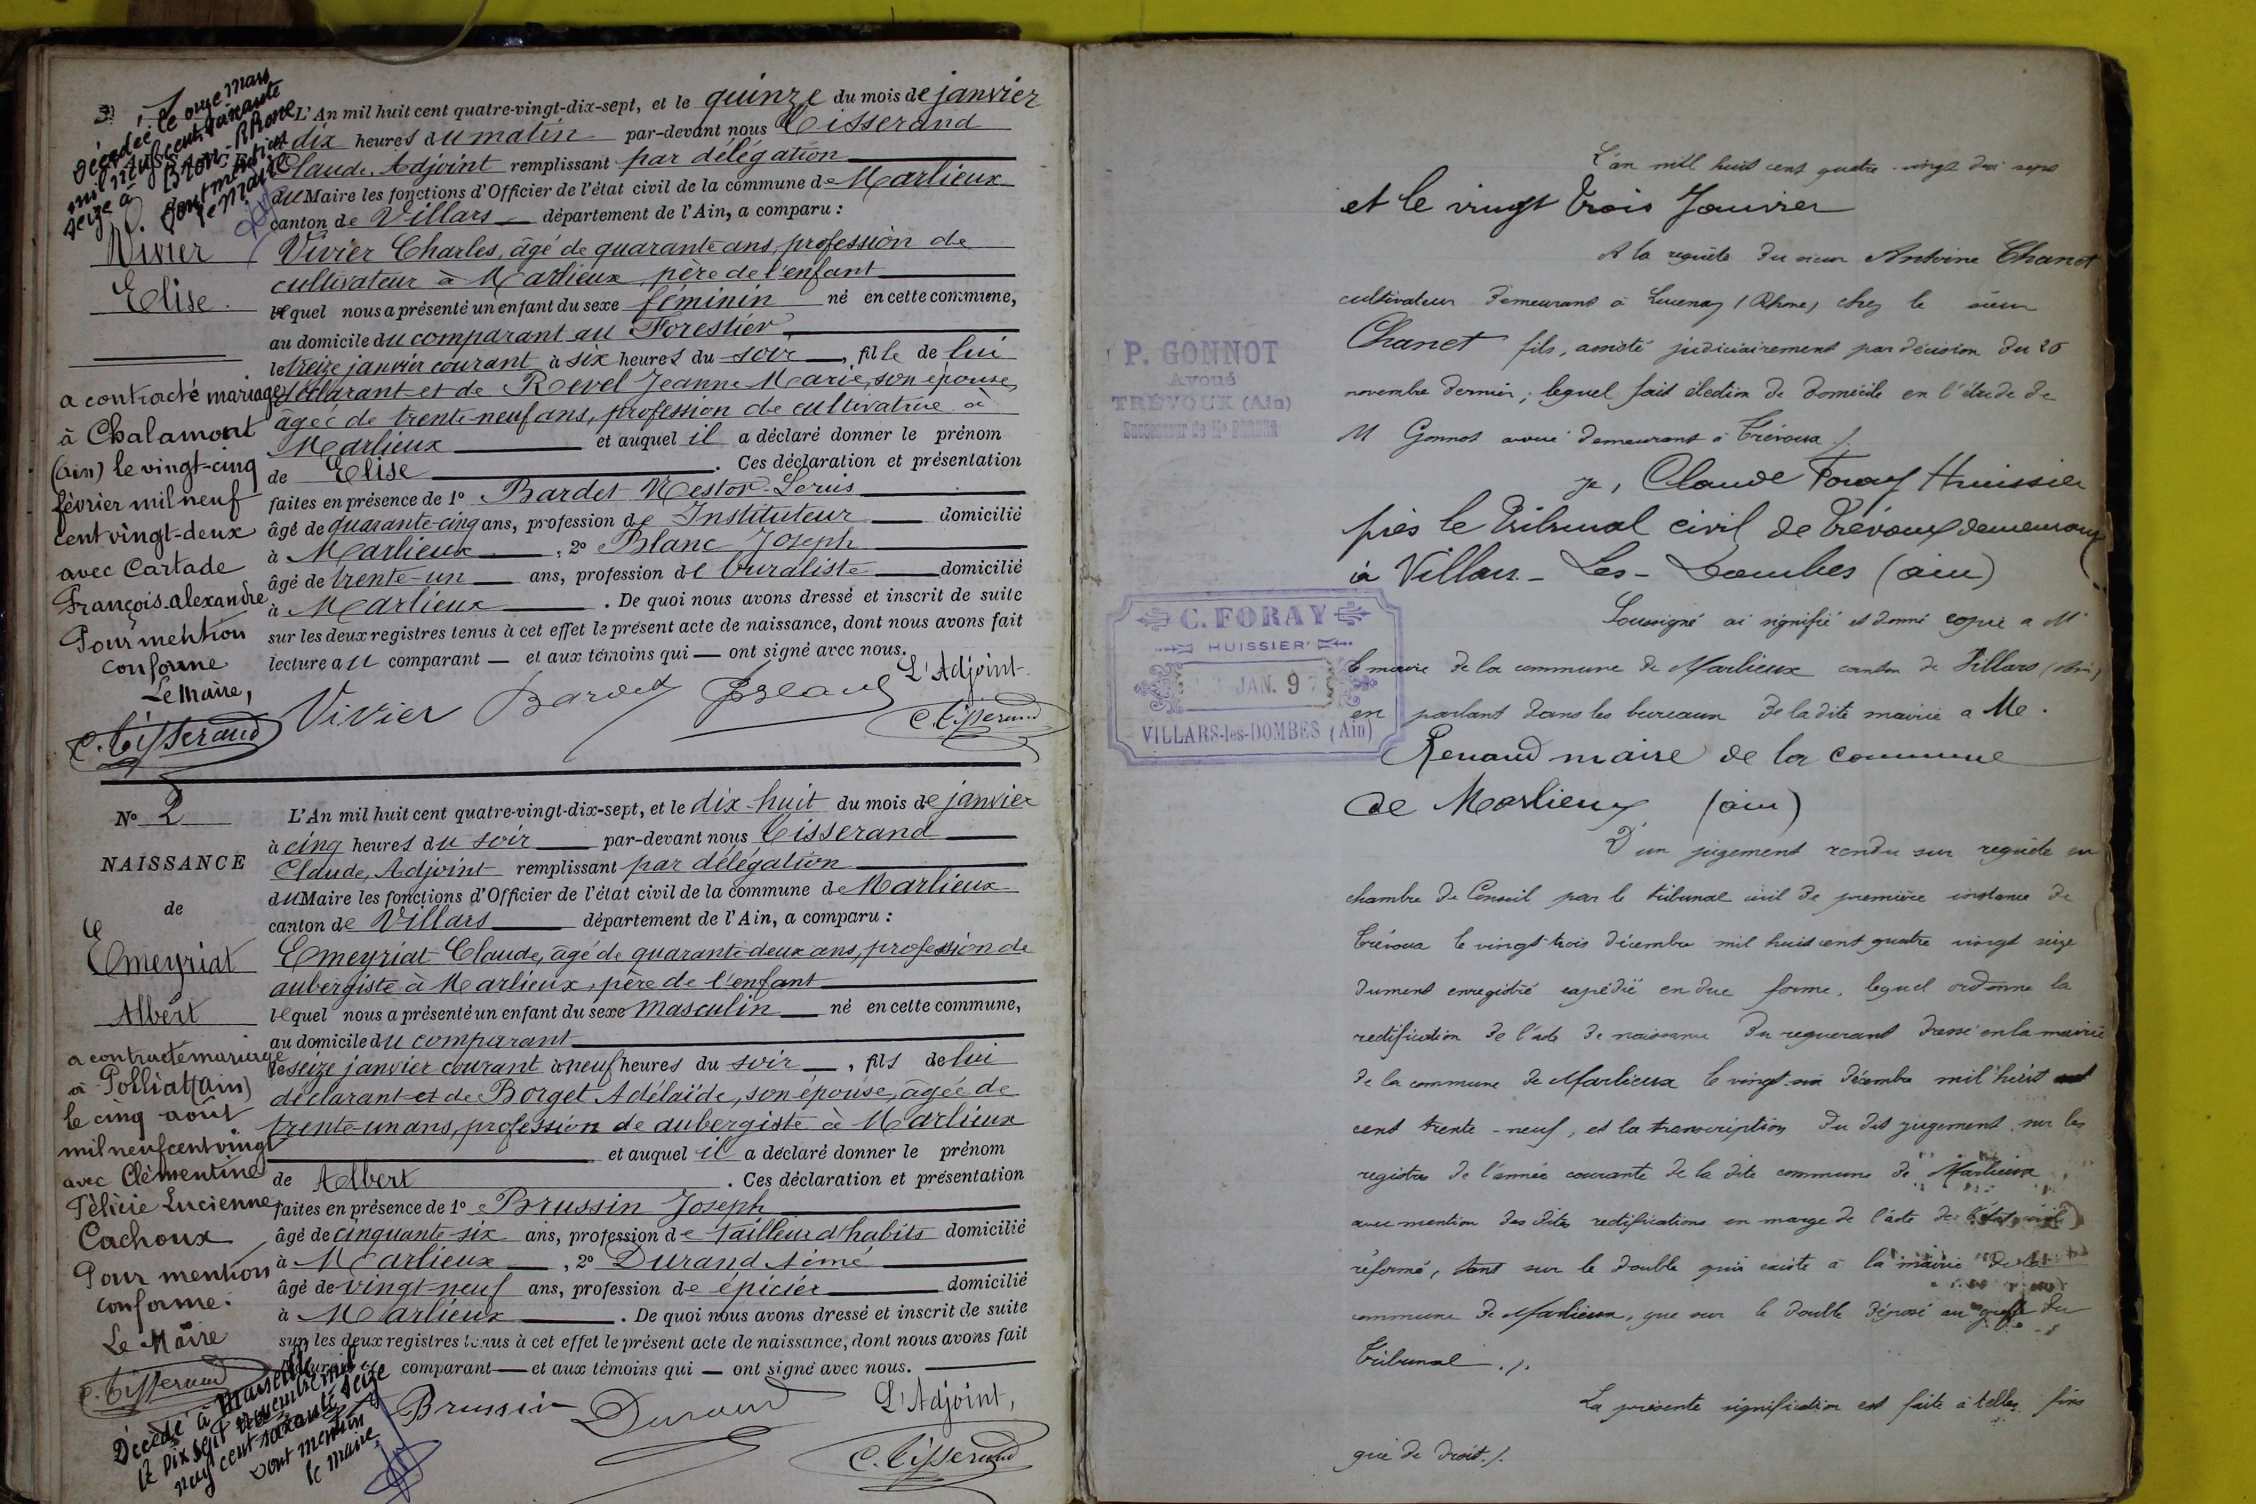 Décédée le onze mars
mil neuf cent soixante
seize à Bron - Rhône
dont mention
le Maire
L'An mil huit cent quatre-vingt-dix-sept, et le quinze du mois de janvier
dix heures du matin par-devant nous Tisserand
Claude, Adjoint remplissant par délégation
du Maire les fonctions d'Officier de l'état civil de la commune de Marlieux
canton de Villars département de l'Ain, a comparu :
Vivier
Elise.
Vivier Charles, âgé de quarante ans, profession de
cultivateur à Marlieux, père de l'enfant
lequel nous a présenté un enfant du sexe féminin né en cette commune,
au domicile du comparant au Forestier
le treize janvier courant à six heures du soir, fille de lui
déclarant et de Revel Jeanne Marie, son épouse,
âgée de trente-neuf ans, profession de cultivatrice à
Marlieux et auquel il a déclaré donner le prénom
de Elise. Ces déclaration et présentation
faites en présence de 1º Bardet Nestor-Louis
âgé de quarante-cinq ans, profession de Instituteur domicilié
à Marlieux, 2º Blanc Joseph
âgé de trente-un ans, profession de buraliste domicilié
à Marlieux. De quoi nous avons dressé et inscrit de suite
sur les deux registres tenus à cet effet le présent acte de naissance, dont nous avons fait
lecture au comparant — et aux témoins qui — ont signé avec nous.
L'Adjoint
Vivier Bardet JBlanc C. Tisserand
a contracté mariage
à Chalamont
(Ain) le vingt-cinq
février mil neuf
cent vingt-deux
avec Cartade
François-Alexandre
Pour mention
conforme
Le Maire,
C. Tisserand
Nº 2
NAISSANCE
de
Emeyriat
Albert
L'An mil huit cent quatre-vingt-dix-sept, et le dix-huit du mois de janvier
à cinq heures du soir par-devant nous Tisserand
Claude, Adjoint remplissant par délégation
du Maire les fonctions d'Officier de l'état civil de la commune de Marlieux
canton de Villars département de l'Ain, a comparu :
Emeyriat Claude, âgé de quarante-deux ans, profession de
aubergiste à Marlieux, père de l'enfant
lequel nous a présenté un enfant du sexe masculin né en cette commune,
au domicile du comparant
le seize janvier courant à neuf heures du soir, fils de lui
déclarant et de Borget Adélaïde, son épouse, âgée de
trente-un ans, profession de aubergiste à Marlieux
et auquel il a déclaré donner le prénom
de Albert. Ces déclaration et présentation
faites en présence de 1º Brussin Joseph
âgé de cinquante-six ans, profession de tailleur d'habits domicilié
à Marlieux, 2º Durand Aimé
âgé de vingt-neuf ans, profession de épicier domicilié
à Marlieux. De quoi nous avons dressé et inscrit de suite
sur les deux registres tenus à cet effet le présent acte de naissance, dont nous avons fait
comparant — et aux témoins qui — ont signé avec nous.
L'Adjoint,
Brussin Durand C. Tisserand
a contracté mariage
à Polliat (Ain)
le cinq août
mil neuf cent vingt
avec Clémentine
Félicie Lucienne
Cachoux
Pour mention
conforme.
Le Maire
C. Tisserand
Décédé à Marseille
le dix sept novembre mil
neuf cent soixante seize
Dont mention
le maire
L'an mill huit cent quatre-vingt dix sept
et le vingt trois Janvier
A la requête du sieur Antoine Chanet
cultivateur demeurant à Lucenay (Rhone) chez le sieur
Chanet fils, assisté judiciairement par décision du 26
novembre dernier; lequel fait élection de domicile en l'étude de
M Gonnot avoué demeurant à Trévoux /.
P. GONNOT
Avoué
TRÉVOUX (Ain)
Je, Claude Foray Huissier
près le Tribunal civil de Trévoux demeurant
à Villars-Les-Dombes (ain)
C. FORAY
HUISSIER
JAN. 97
VILLARS-les-DOMBES (Ain)
Soussigné ai signifié et donné copie a Mr
le maire de la commune de Marlieux canton de Villars (Ain)
en parlant dans les bureaux de la dite mairie a Me.
Renaud maire de la commune
de Marlieux (ain)
D'un jugement rendu sur requête en
chambre du Conseil par le tribunal civil de première instance de
Trévoux le vingt-trois décembre mil huit cent quatre vingt seize
dument enregistré expédié en due forme, lequel ordonne la
rectification de l'acte de naissance du requerant dressé en la mairie
de la commune de Marlieux le vingt-six décembre mil huit
cent trente-neuf, et la transcription du dit jugement sur les
registres de l'année courante de la dite commune de Marlieux
avec mention des dites rectifications en marge de l'acte de l'état civil
réformé, tant sur le double qui existe à la mairie de la
commune de Marlieux, que sur le double déposé au greffe du
Tribunal ./.
La présente signification est faite à telles fins
que de droit./.